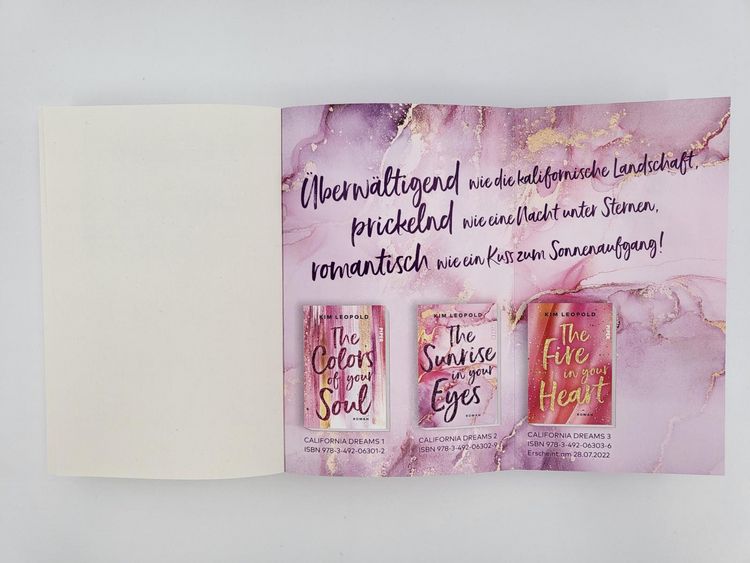 Überwältigend wie die kalifornische Landschaft,
prickelnd wie eine Nacht unter Sternen,
romantisch wie ein Kuss zum Sonnenaufgang!
KIM LEOPOLD
The
Colors
of your
Soul
ROMAN
PIPER
KIM LEOPOLD
The
Sunrise
in your
Eyes
ROMAN
KIM LEOPOLD
The
Fire
in your
Heart
ROMAN
PIPER
CALIFORNIA DREAMS 1
ISBN 978-3-492-06301-2
CALIFORNIA DREAMS 2
ISBN 978-3-492-06302-9
CALIFORNIA DREAMS 3
ISBN 978-3-492-06303-6
Erscheint am 28.07.2022